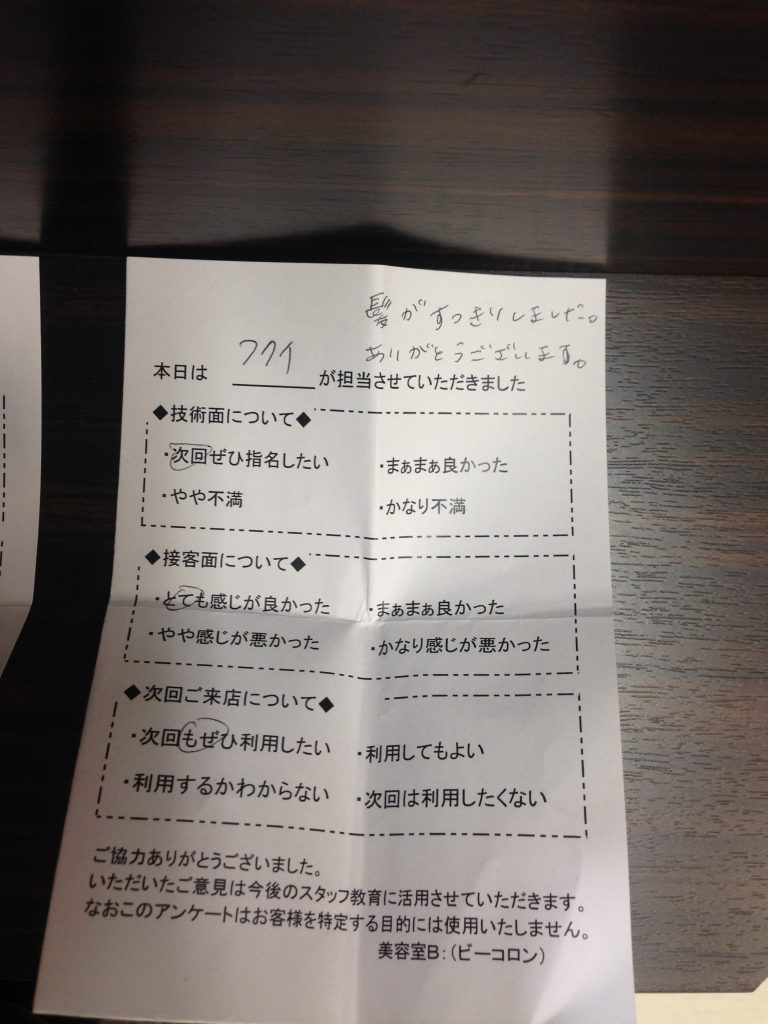 髪がすっきりしました。
ありがとうございます。
本日は フクイ が担当させていただきました
◆技術面について◆
・次回ぜひ指名したい ・まぁまぁ良かった
・やや不満 ・かなり不満
◆接客面について◆
・とても感じが良かった ・まぁまぁ良かった
・やや感じが悪かった ・かなり感じが悪かった
◆次回ご来店について◆
・次回もぜひ利用したい ・利用してもよい
・利用するかわからない ・次回は利用したくない
ご協力ありがとうございました。
いただいたご意見は今後のスタッフ教育に活用させていただきます。
なおこのアンケートはお客様を特定する目的には使用いたしません。
美容室B:(ビーコロン)